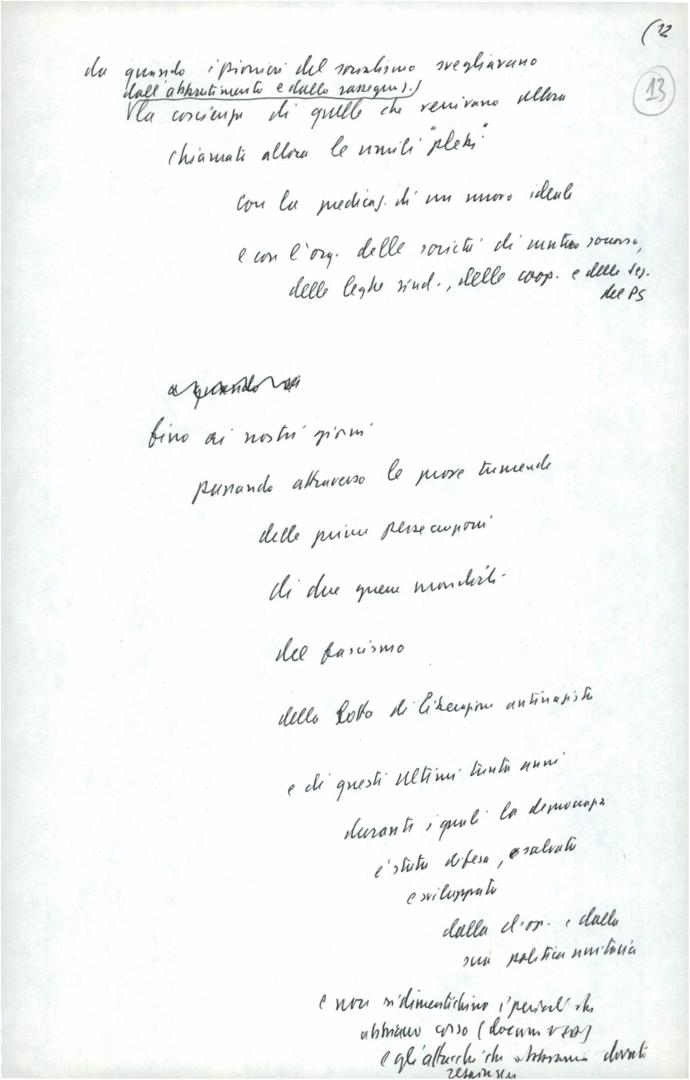 (12
13
da quando i pionieri del socialismo svegliavano
dall'abbrutimento e dalla rassegnaz.)
la coscienza di quelle che venivano allora
chiamate allora le umili "plebi"
con la predicaz. di un nuovo ideale
e con l'org. delle società di mutuo soccorso,
delle leghe sind., delle coop. e delle sez.
del PS
a quando
fino ai nostri giorni
passando attraverso le prove tremende
delle prime persecuzioni
di due guerre mondiali
del fascismo
della lotta di liberazione antinazista
e di questi ultimi trenta anni
durante i quali la democrazia
è stata difesa, salvata
e sviluppata
dalla cl. op. e dalla
sua politica unitaria
e non si dimentichino i pericoli che
abbiamo corso (docum USA)
e gli attacchi che abbiamo dovuto